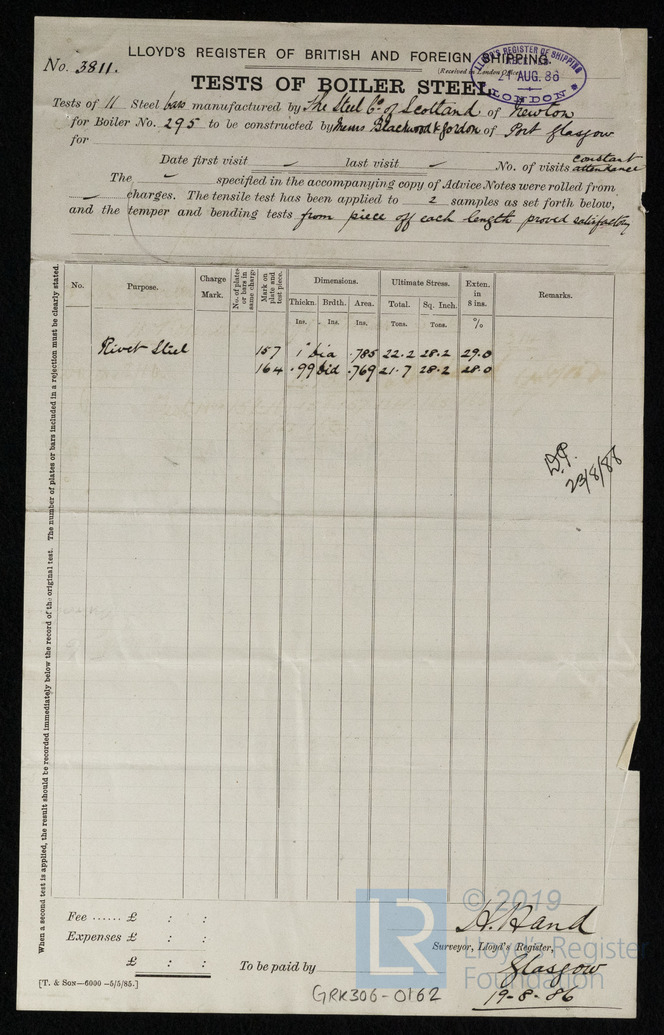 No. 3811.
LLOYD'S REGISTER OF BRITISH AND FOREIGN SHIPPING.
(Received in London Office
LLOYD'S REGISTER OF SHIPPING
21 AUG. 86
LONDON
TESTS OF BOILER STEEL
Tests of 11 Steel bars manufactured by The Steel Co. of Scotland of Newton
for Boiler No. 295 to be constructed by Messrs Blackwood & Gordon of Port Glasgow
for
Date first visit last visit No. of visits constant attendance
The specified in the accompanying copy of Advice Notes were rolled from
charges. The tensile test has been applied to 2 samples as set forth below,
and the temper and bending tests from piece off each length proved satisfactory
When a second test is applied, the result should be recorded immediately below the record of the original test. The number of plates or bars included in a rejection must be clearly stated.
No. Purpose. Charge Mark. No. of plates or bars in same charge Mark on plate and test piece. Dimensions. Ultimate Stress. Exten. in 8 ins. Remarks.
Thickn. Brdth. Area. Total. Sq. Inch.
Ins. Ins. Ins. Tons. Tons. %
Rivet Steel 157 1" dia .785 22.2 28.2 29.0
164 .99 dia .769 21.7 28.2 28.0
D.P.
23/8/86
Fee ...... £ : :
Expenses £ : :
£ : :
To be paid by
H. Hand
Surveyor, Lloyd's Register,
Glasgow
19-8-86
[T. & SON—6000—5/5/85.]
GRK306-0162
LR
© 2019
Lloyd's Register
Foundation